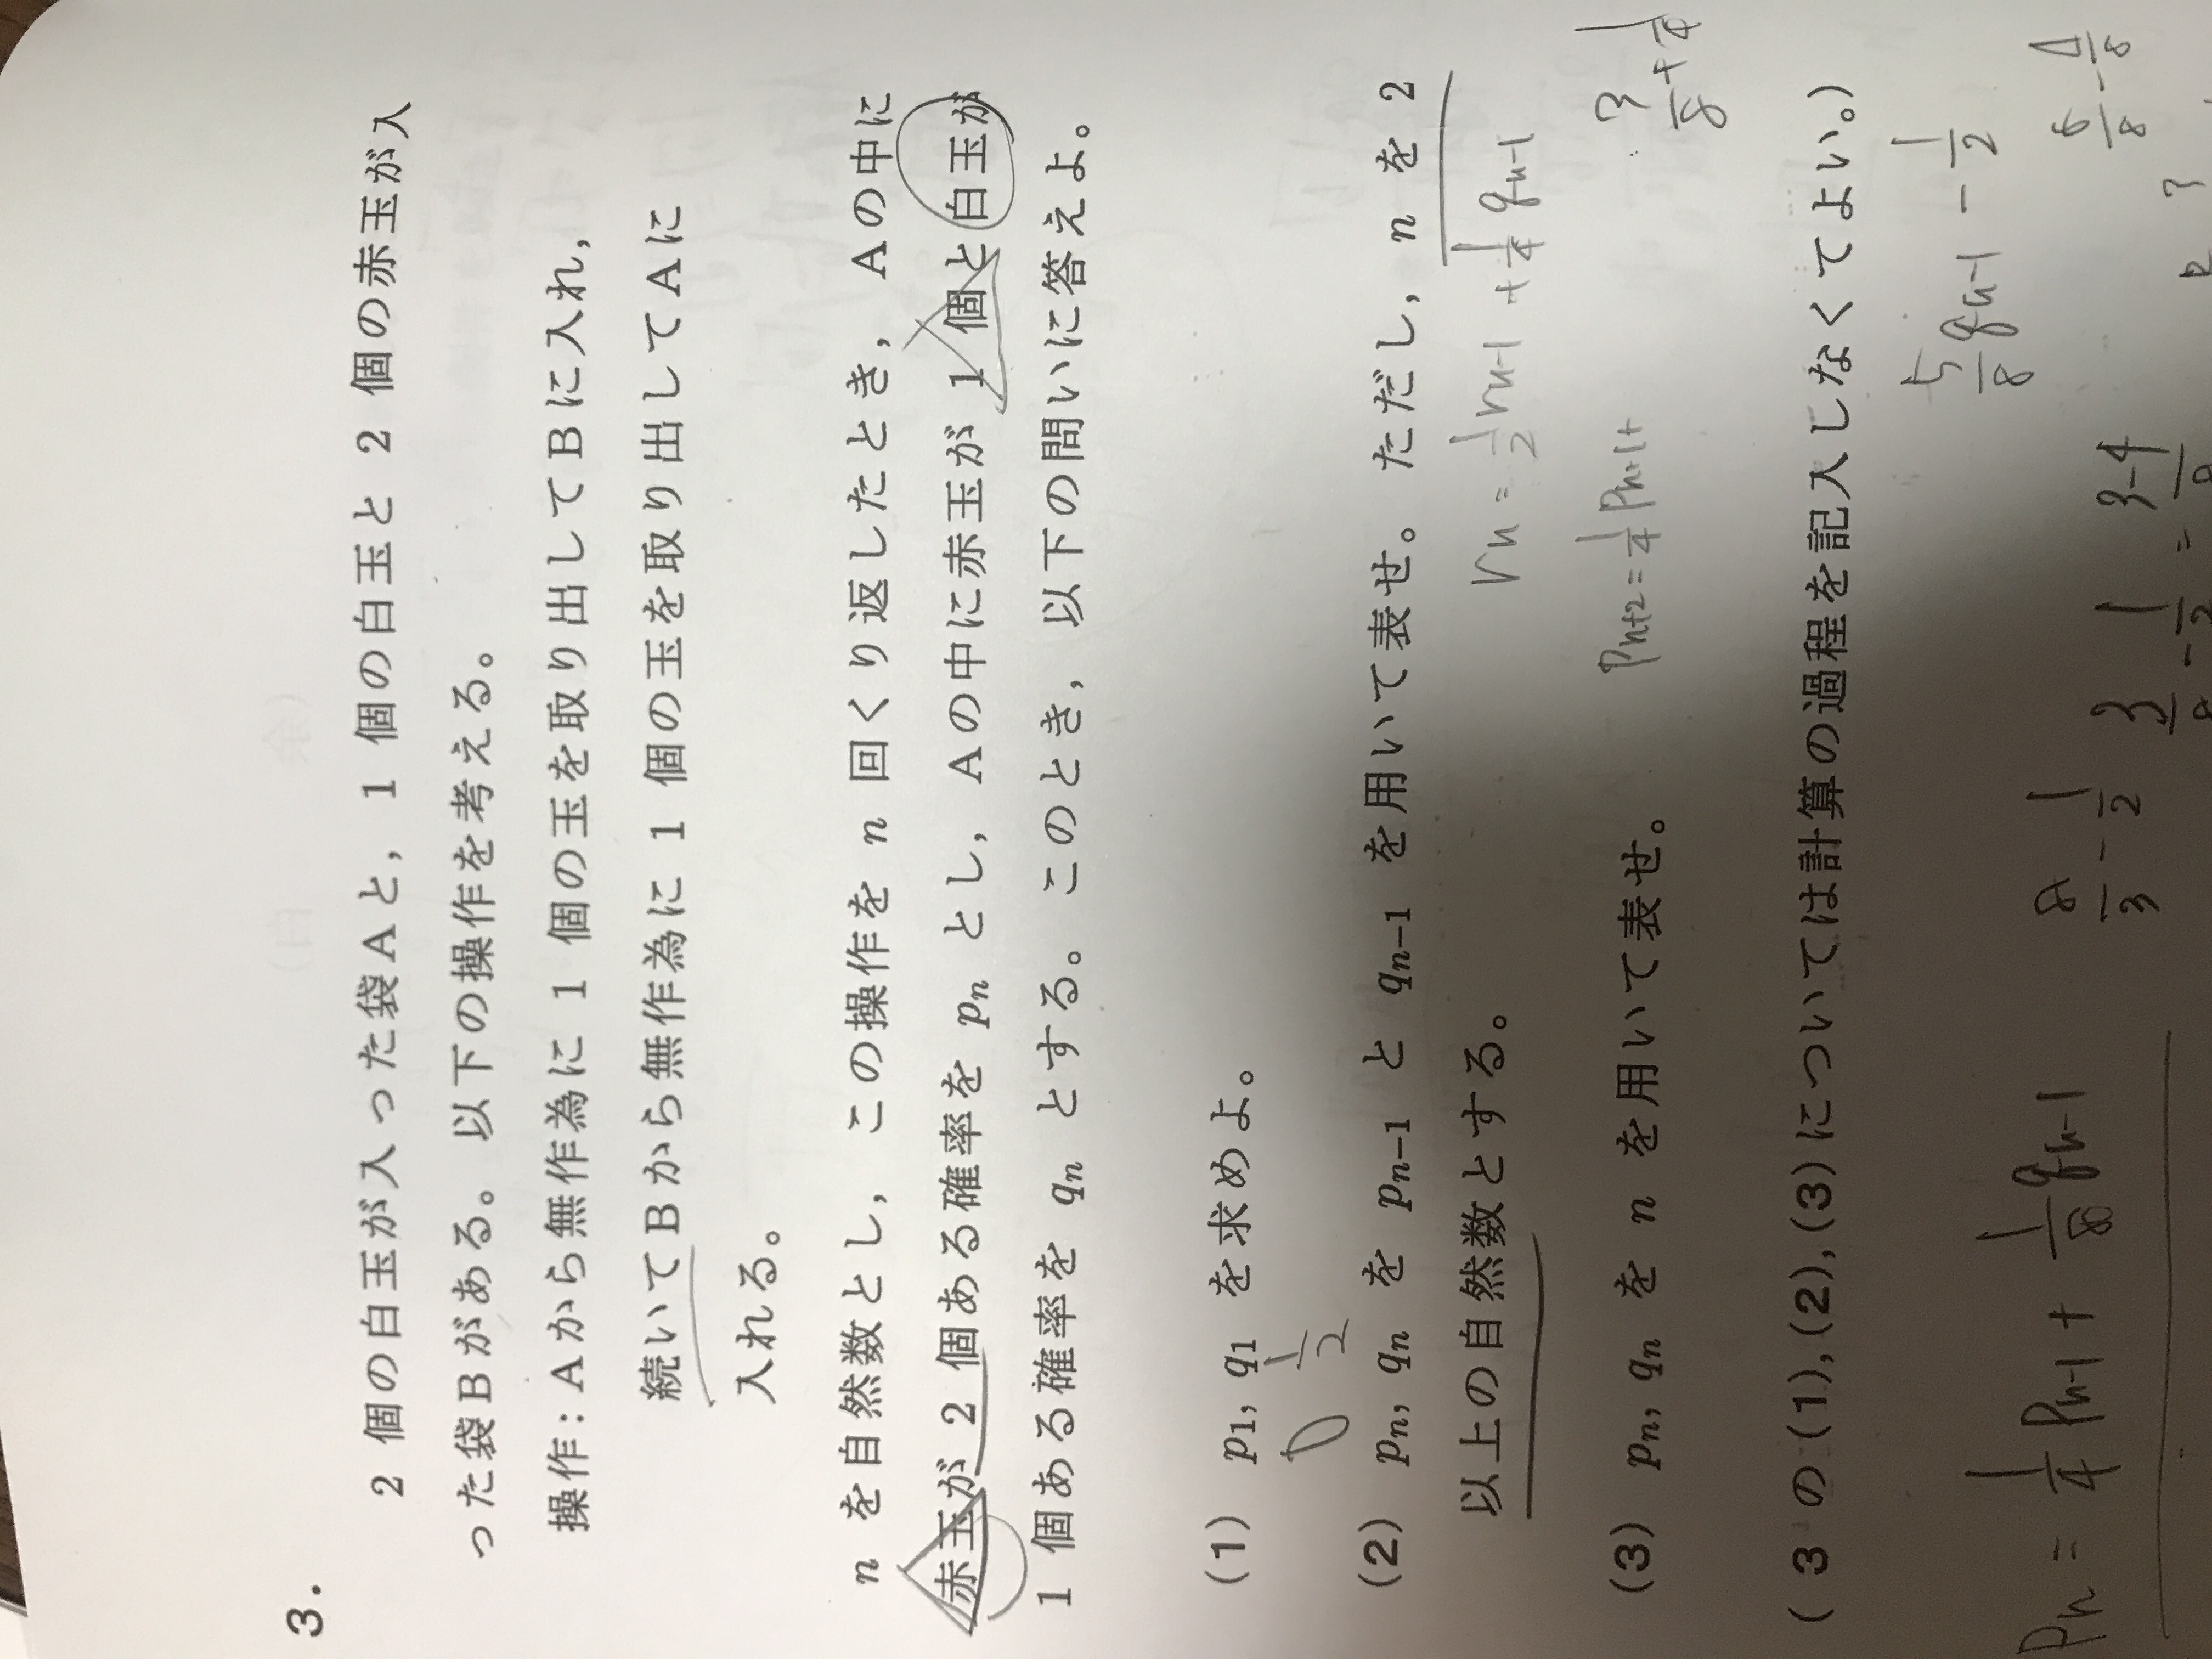 3.
2 個の白玉が入った袋Aと, 1 個の白玉と 2 個の赤玉が入
った袋Bがある。以下の操作を考える。
操作: Aから無作為に 1 個の玉を取り出してBに入れ,
続いてBから無作為に 1 個の玉を取り出してAに
入れる。
n を自然数とし, この操作を n 回くり返したとき, Aの中に
赤玉が 2 個ある確率を pn とし, Aの中に赤玉が 1 個と白玉が
1 個ある確率を qn とする。このとき, 以下の問いに答えよ。
(1) p1, q1 を求めよ。
0 1/2
(2) pn, qn を pn−1 と qn−1 を用いて表せ。ただし, n を 2
以上の自然数とする。
rn = 1/2 rn-1 + 1/4 qn-1
(3) pn, qn を n を用いて表せ。
pn+2 = 1/4 pn+1 +
3/8 + 1/4
( 3 の (1), (2), (3) については計算の過程を記入しなくてよい。)
5/8 qn-1 - 1/2
Pn = 1/4 Pn-1 + 1/8 qn-1
8/3 - 1/2
6/8 - 4/8